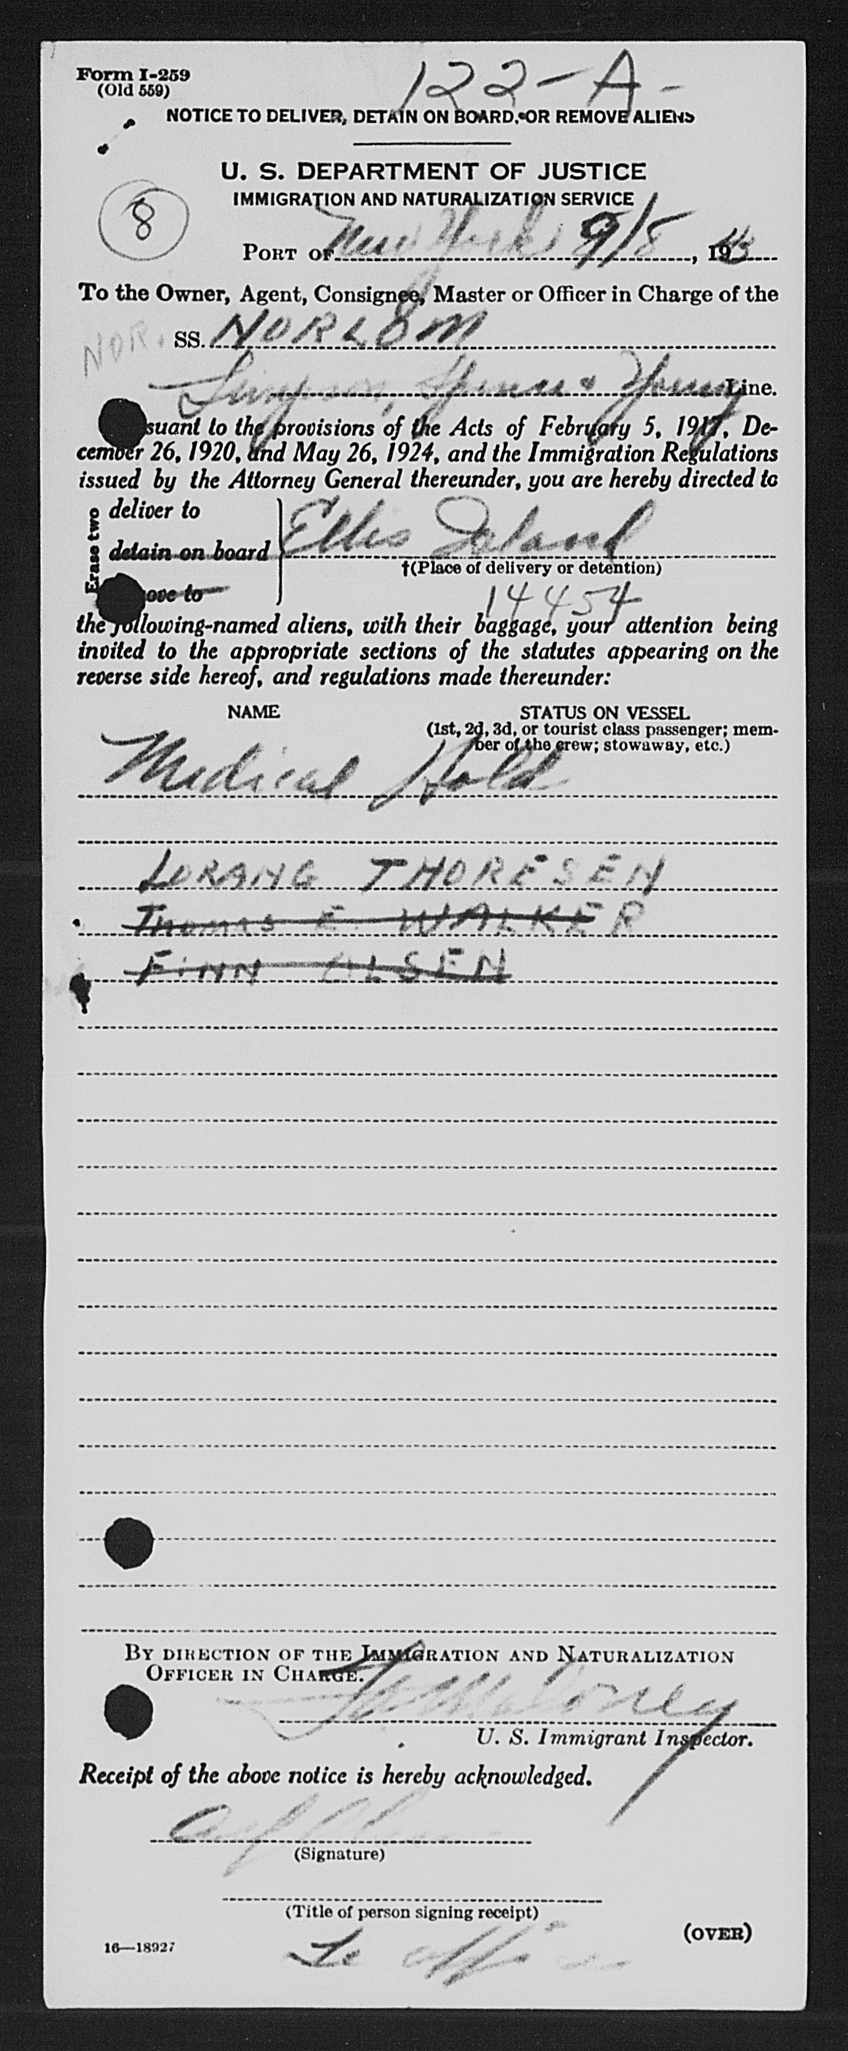 Form I-259
(Old 559)
122-A-
NOTICE TO DELIVER, DETAIN ON BOARD, OR REMOVE ALIENS
U. S. DEPARTMENT OF JUSTICE
IMMIGRATION AND NATURALIZATION SERVICE
8
PORT OF New York 9/8, 1943
To the Owner, Agent, Consignee, Master or Officer in Charge of the
NOR. SS. NORLOM
Simpson, Spence & Young Line.
suant to the provisions of the Acts of February 5, 1917, De-
cember 26, 1920, and May 26, 1924, and the Immigration Regulations
issued by the Attorney General thereunder, you are hereby directed to
Erase two
deliver to
detain on board
ove to
Ellis Island
†(Place of delivery or detention)
14454
the following-named aliens, with their baggage, your attention being
invited to the appropriate sections of the statutes appearing on the
reverse side hereof, and regulations made thereunder:
NAME
STATUS ON VESSEL
(1st, 2d, 3d, or tourist class passenger; mem-
ber of the crew; stowaway, etc.)
Medical Hold
LORANG THORESEN
THOMAS E. WALKER
FINN OLSEN
BY DIRECTION OF THE IMMIGRATION AND NATURALIZATION
OFFICER IN CHARGE.
Maloney
U. S. Immigrant Inspector.
Receipt of the above notice is hereby acknowledged.
(Signature)
(Title of person signing receipt)
(OVER)
16—18927